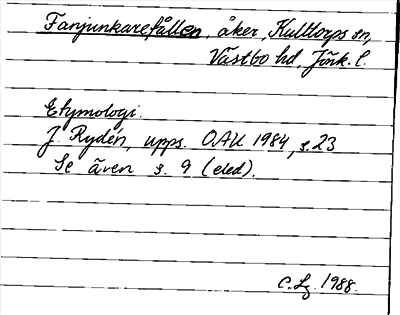 Fanjunkarefållen, åker, Kulltorps sn,
Västbo hd, Jönk. l.
Etymologi.
J. Rydén, upps. OAU 1984, s. 23
Se även s. 9 (eled).
C. Lg. 1988.